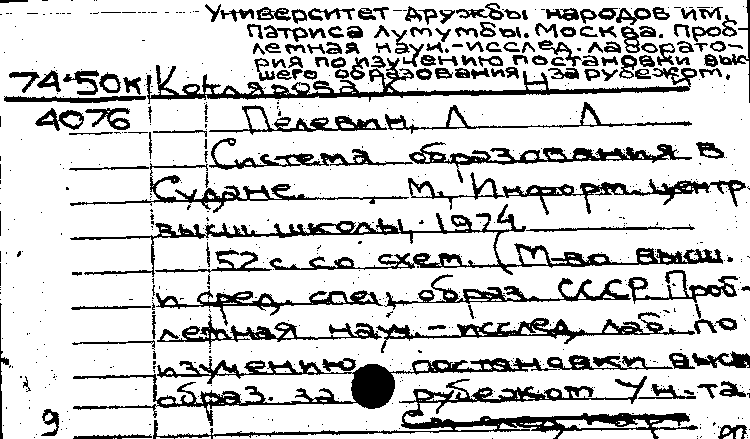 Университет дружбы народов им.
Патриса Лумумбы. Москва. Проб-
лемная науч.-исслед. лаборато-
рия по изучению постановки выс-
шего образования за рубежом.
74-50к Котлярова К Н
4076 Пелевин, Л Л
Система образования в
Судане. М., Информ. центр
высш. школы, 1974.
52 с. со схем. (М-во высш.
и сред. спец. образ. СССР. Проб-
лемная науч.-исслед. лаб. по
изучению постановки высш
образ. за рубежом Ун-та
9 См. след. карт